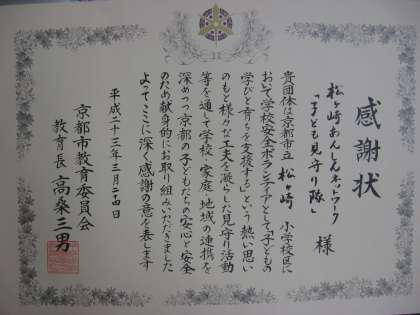 感謝状
松ヶ崎あんしんネットワーク
「子ども見守り隊」 様
貴団体は京都市立 松ヶ崎 小学校区に
おいて学校安全ボランティアとして「子どもの
学びと育ちを支援する」という熱い思い
のもと様々な工夫を凝らした見守り活動
等を通して学校・家庭・地域の連携を
深めつつ京都の子どもたちの安心と安全
のため献身的にお取り組みいただきました
よってここに深く感謝の意を表します
平成二十三年三月二十四日
京都市教育委員会
教育長 高桑三男